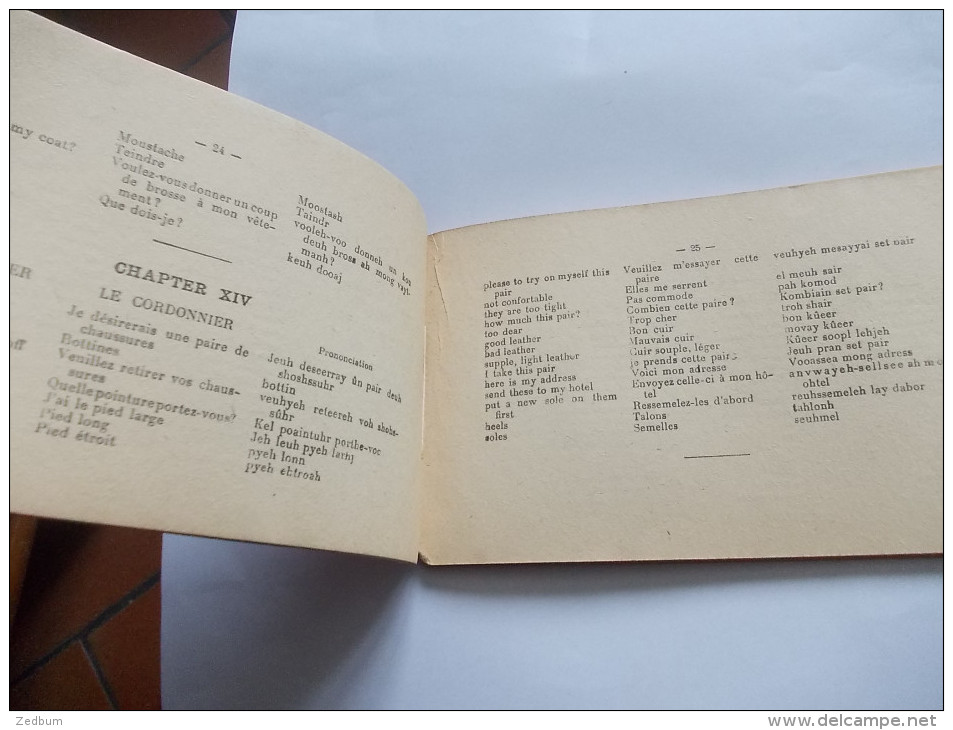 — 24 —
my coat?
Moustache
Teindre
Voulez-vous donner un coup
de brosse à mon vête-
ment?
Que dois-je?
Moostash
Taindr
vooleh-voo donneh un koo
deuh bross ah mong vayt-
manh?
keuh doosj
CHAPTER XIV
LE CORDONNIER
Je désirerais une paire de
chaussures
Bottines
Venillez retirer vos chaus-
sures
Quelle pointure portez-vous?
J'ai le pied large
Pied long
Pied étroit
Prononciation
Jeuh deseerray ûn pair deuh
shoshsauhr
bottin
veuhyeh reteereh voh shohs-
sûhr
Kel poaintuhr porthe-voc
Jeh leuh pyeh larhj
pyeh lonn
pyeh ehtroah
— 25 —
please to try on myself this
pair
not confortable
they are too tight
how much this pair?
too dear
good leather
bad leather
supple, light leather
I take this pair
here is my address
send these to my hotel
put a new sole on them
first
heels
soles
Veuillez m'essayer cette
paire
Elles me serrent
Pas commode
Combien cette paire?
Trop cher
Bon cuir
Mauvais cuir
Cuir souple, léger
je prends cette paire
Voici mon adresse
Envoyez celle-ci à mon hô-
tel
Ressemelez-les d'abord
Talons
Semelles
veuhyeh mesayyai set pair
el meuh sair
pah komod
Kombiain set pair?
troh shair
bon kûeer
movay kûeer
Kûeer soopl lehjeh
Jeuh pran set pair
Vooassea mong adress
anvwayeh-sellsee ah mo
ohtel
reuhssemeleh lay dabor
tahlonh
seuhmel
Zedbum
www.delcampe.net